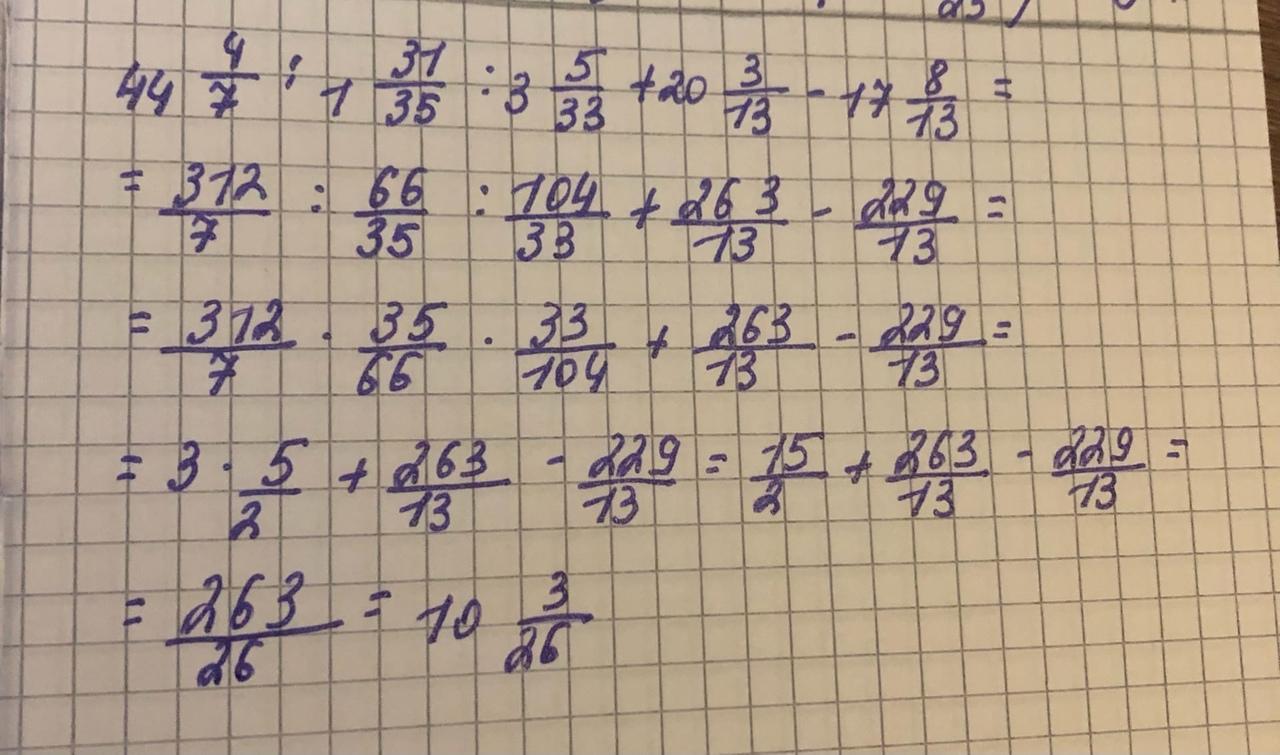 44 4/7 : 1 31/35 : 3 5/33 + 20 3/13 - 17 8/13 =
= 312/7 : 66/35 : 104/33 + 263/13 - 229/13 =
= 312/7 · 35/66 · 33/104 + 263/13 - 229/13 =
= 3 · 5/2 + 263/13 - 229/13 = 15/2 + 263/13 - 229/13 =
= 263/26 = 10 3/26